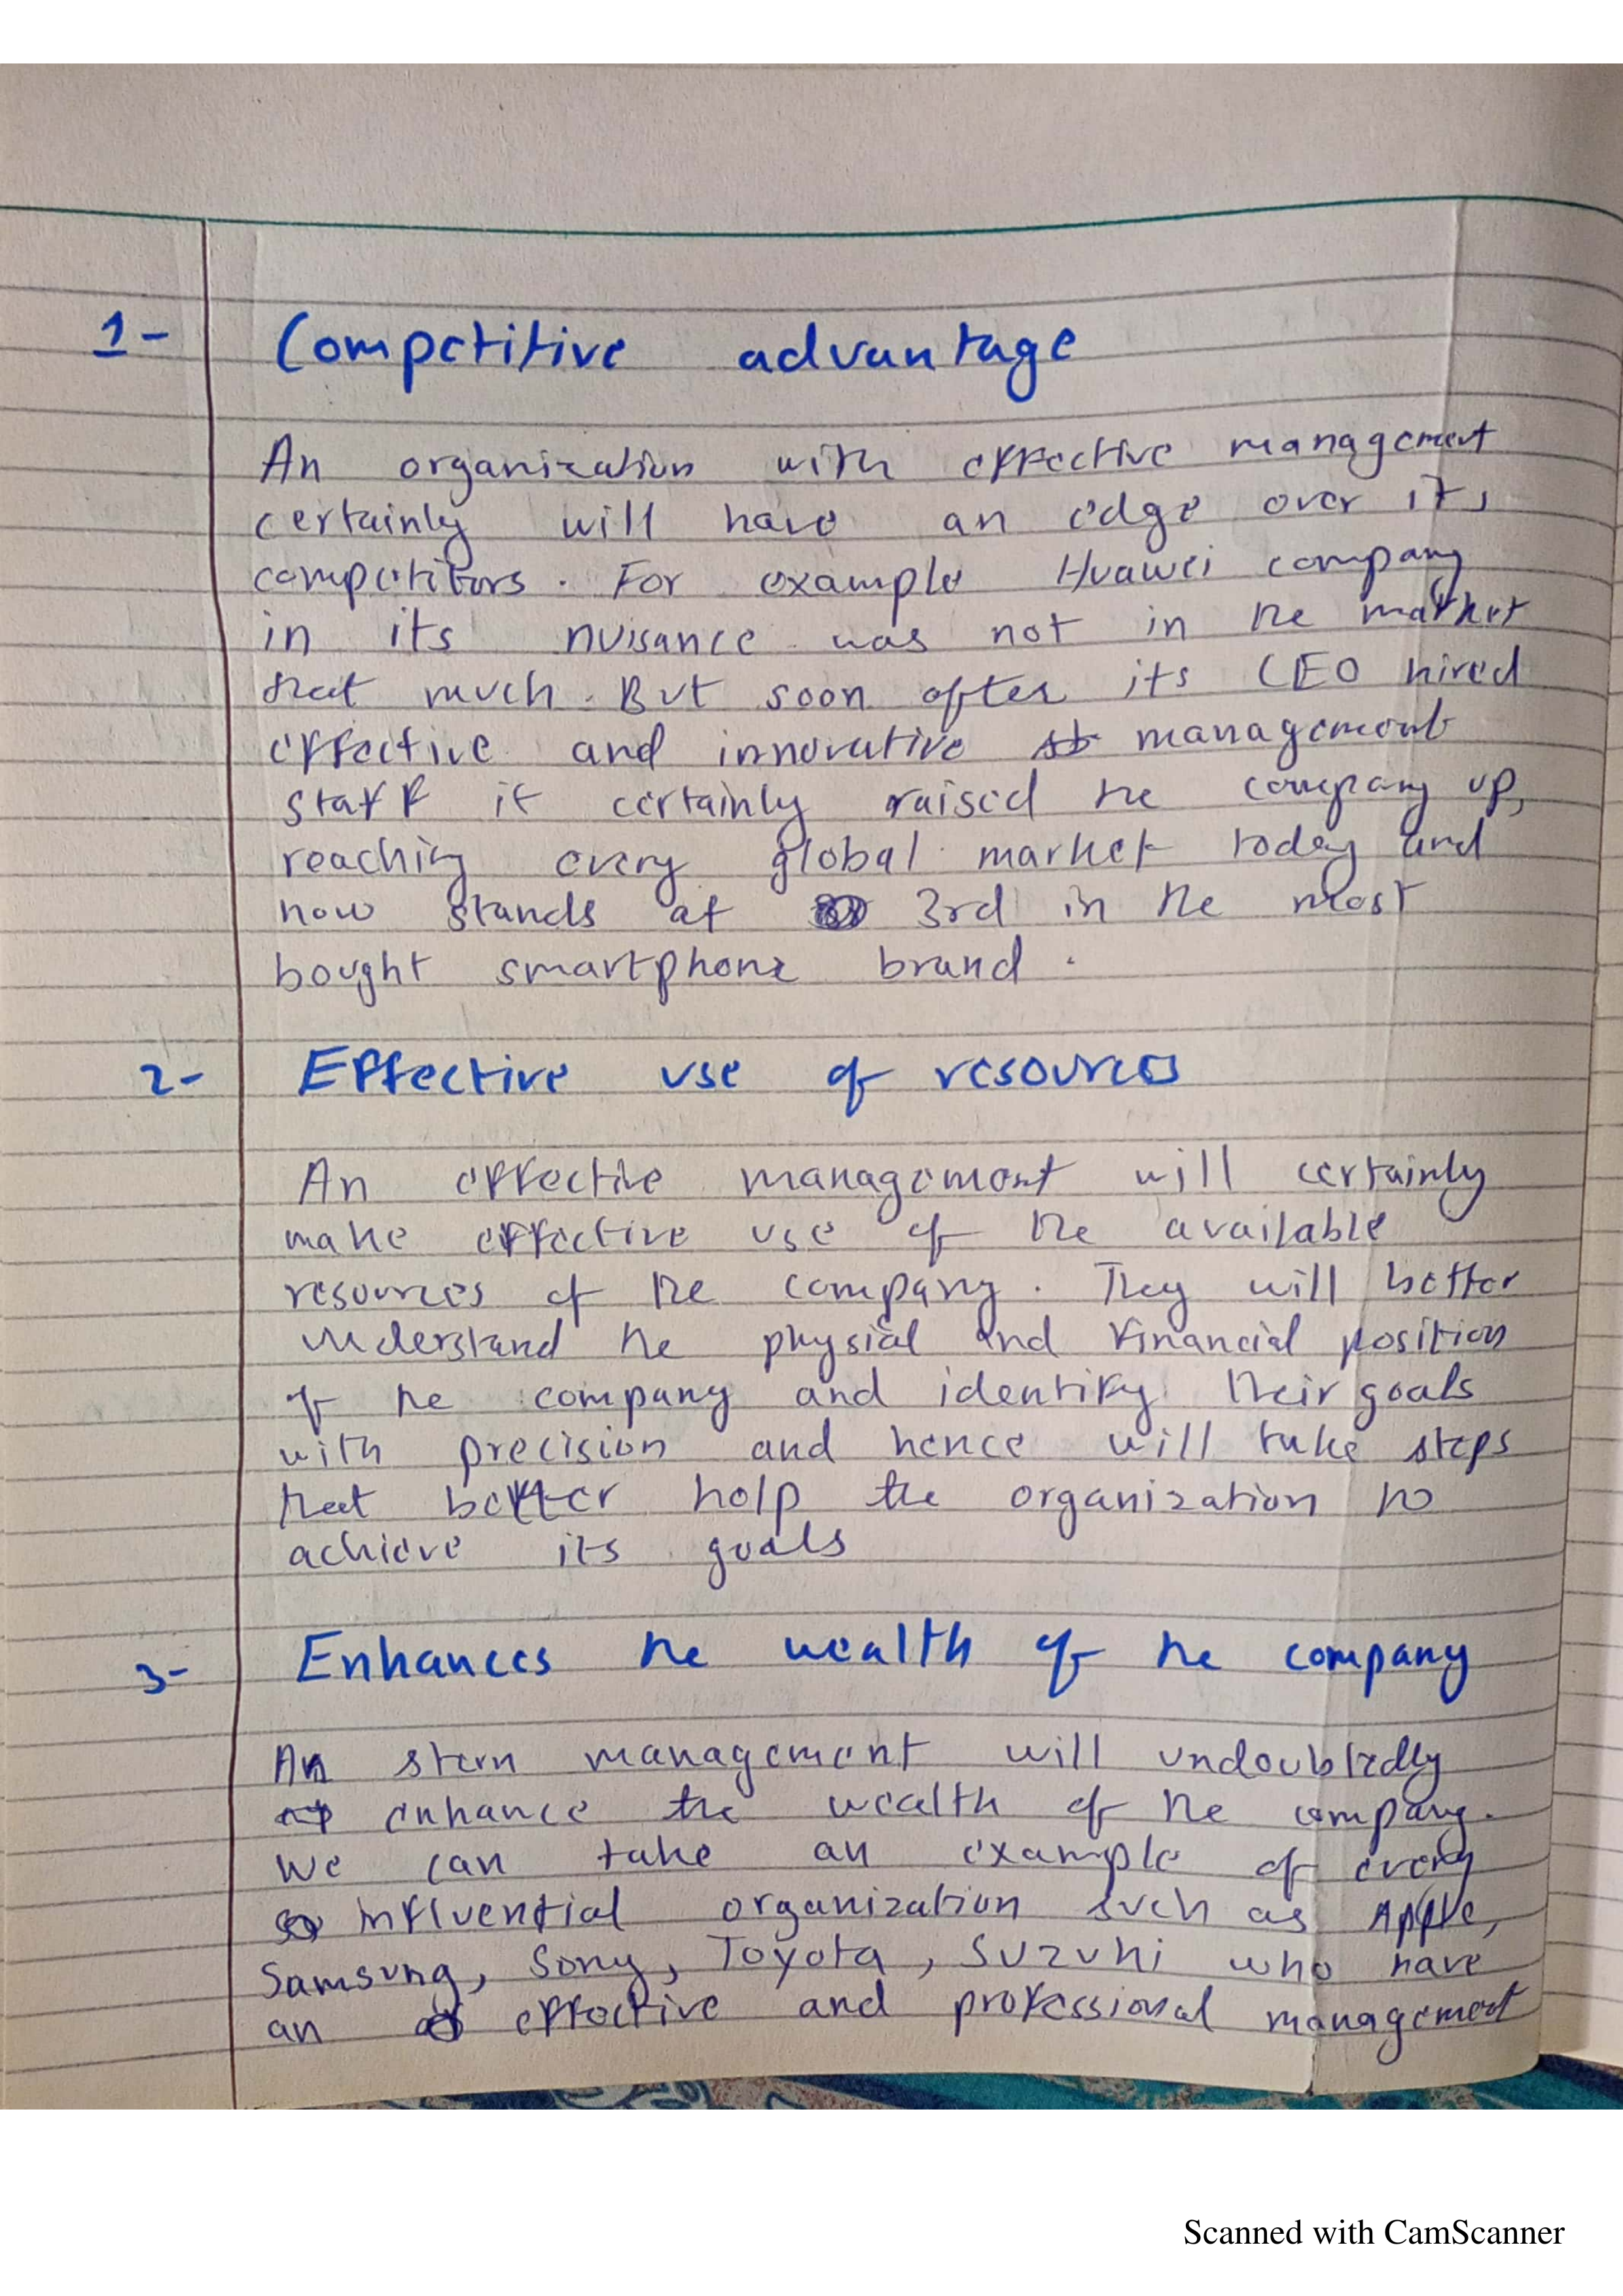 1- Competitive advantage
An organization with effective management
certainly will have an edge over its
competitors. For example Huawei company
in its nuisance was not in the market
that much. But soon after its CEO hired
effective and innovative management
staff it certainly raised the company up,
reaching every global market today and
now stands at 3rd in the most
bought smartphone brand.
2- Effective use of resources
An effective management will certainly
make effective use of the available
resources of the company. They will better
understand the physial and financial position
of the company and identify their goals
with precision and hence will take steps
that better help the organization to
achieve its goals
3- Enhances the wealth of the company
An stern management will undoubtedly
enhance the wealth of the company.
We can take an example of every
influential organization such as Apple,
Samsung, Sony, Toyota, Suzuki who have
an effective and professional management
Scanned with CamScanner